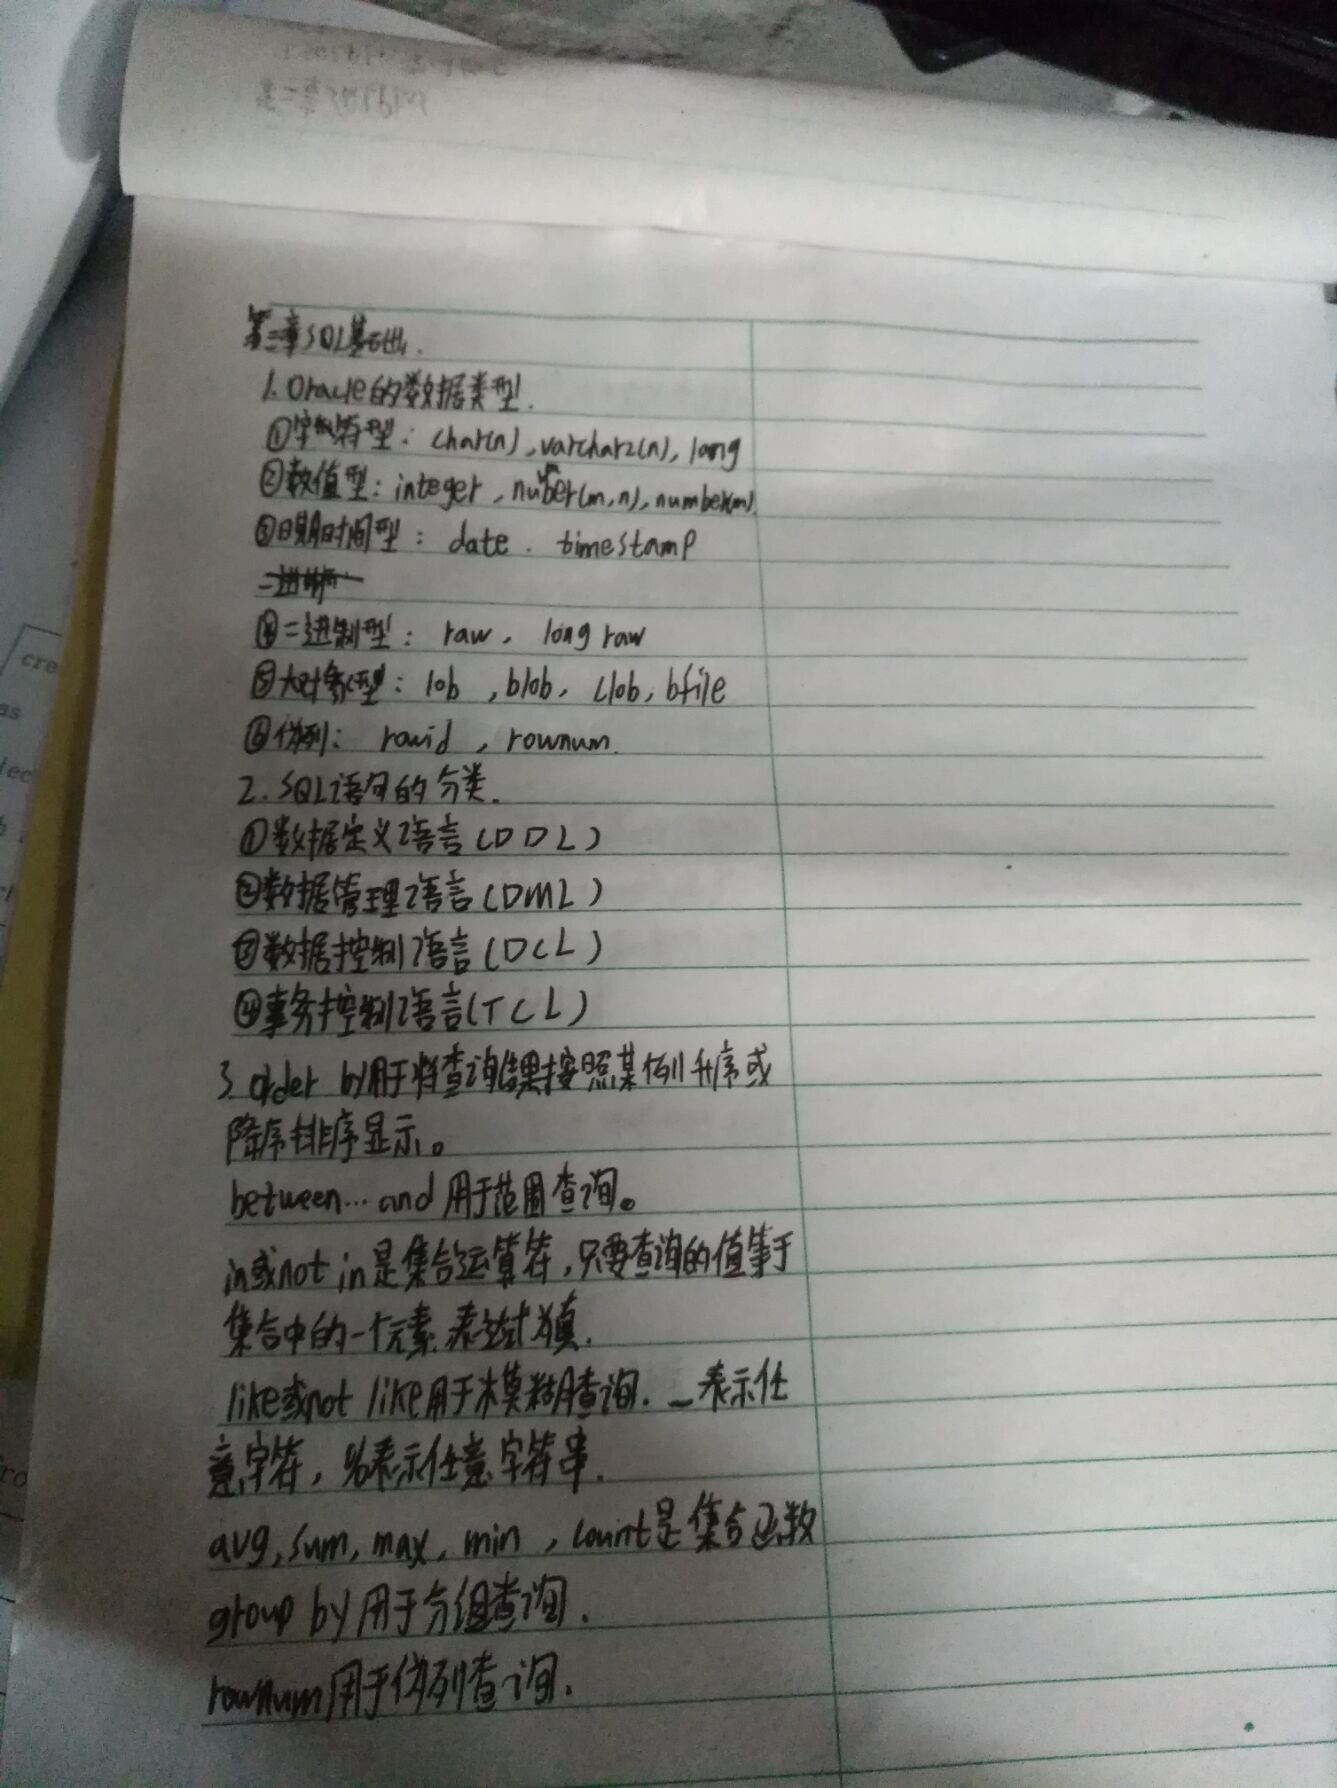 第三章SQL基础.
1.Oracle的数据类型.
①字符型：char(n),varchar2(n),long
②数值型：integer,number(m,n),number(m).
③日期时间型：date.timestamp
④二进制型：raw,long raw
⑤大对象型：lob,blob,clob,bfile
⑥伪列：rowid,rownum.
2.SQL语句的分类.
①数据定义语言(DDL)
②数据管理语言(DML)
③数据控制语言(DCL)
④事务控制语言(TCL)
3.order by用于将查询结果按照某例升序或
降序排序显示。
between…and用于范围查询。
in或not in是集合运算符,只要查询的值等于
集合中的一个元素.表达式为真.
like或not like用于模糊查询._表示任
意字符,%表示任意字符串.
avg,sum,max,min,count是集合函数
group by用于分组查询.
rownum用于伪列查询.